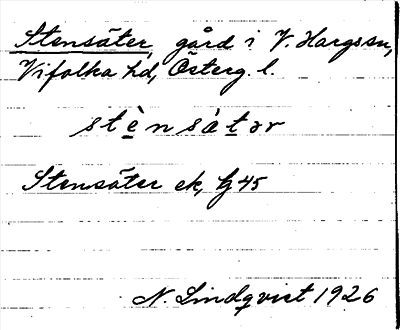 Stensäter, gård i V. Hargs sn,
Vifolka hd, Österg. l.
stènsàtər
Stensäter ek, bg 45
N. Lindqvist 1926